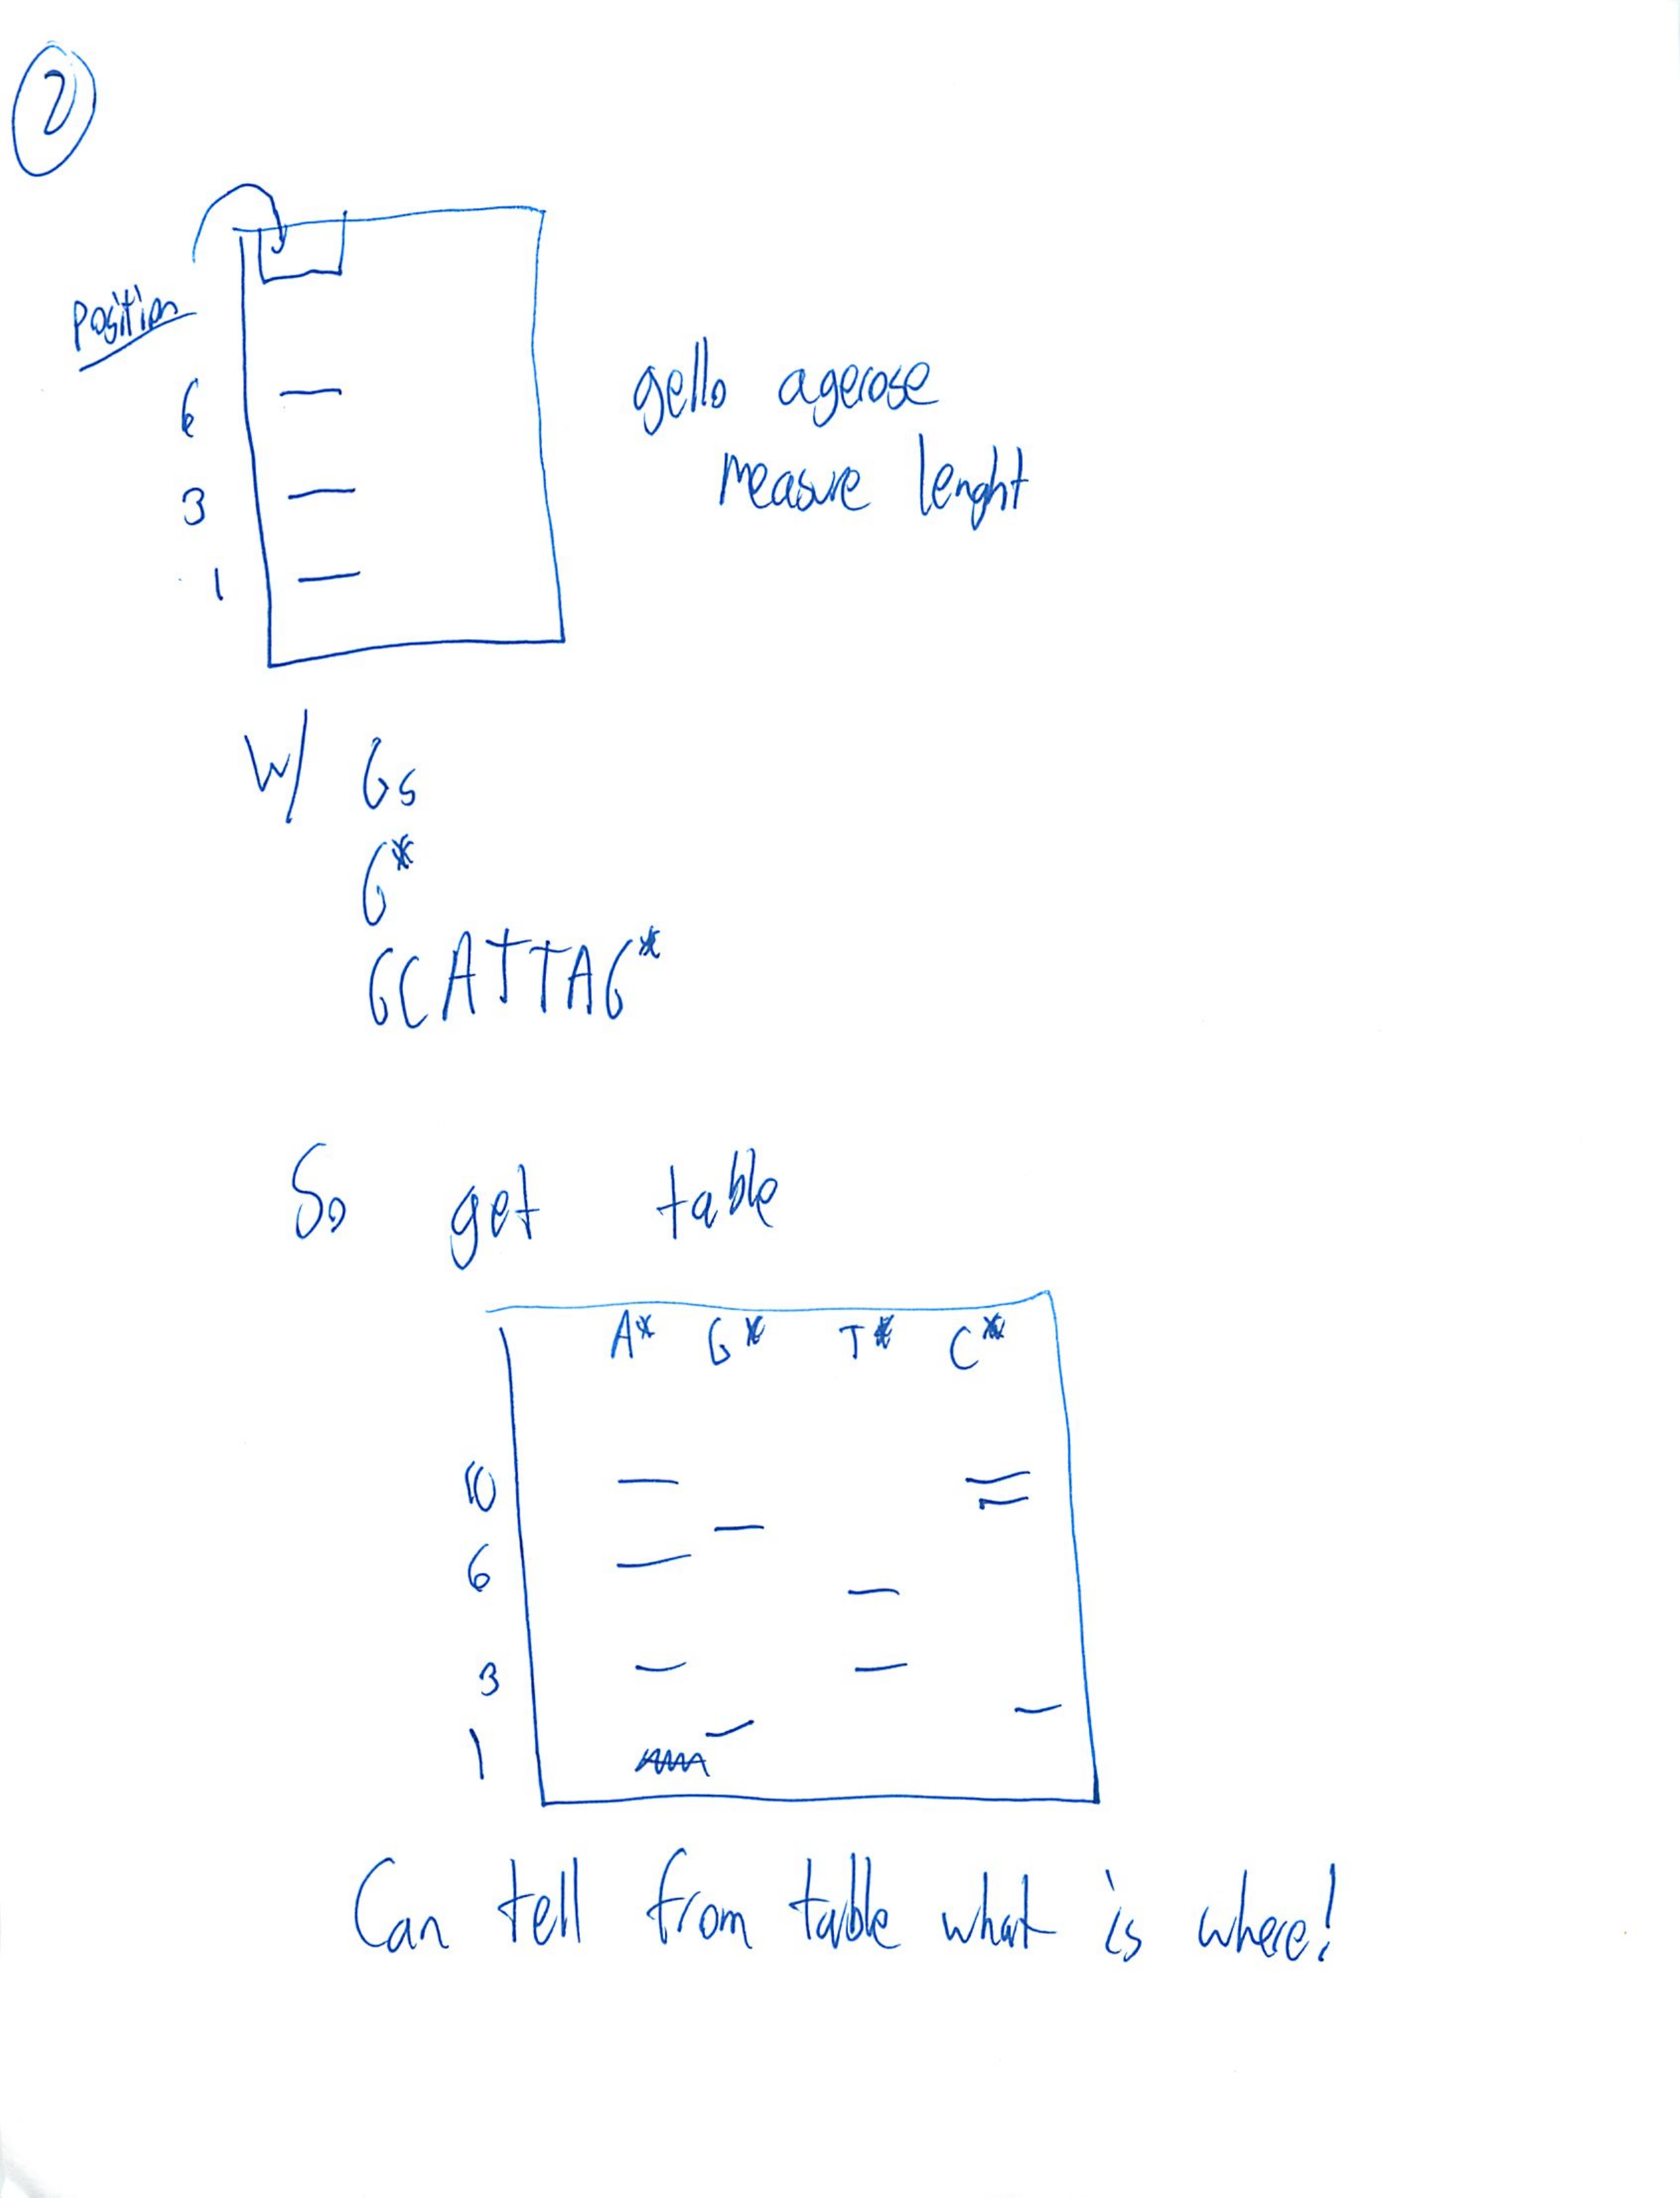 2
Position
6
3
1
gello agerose
measure lenght
W/ Gs
G*
GCATTAG*
So get table
A* G* T* C*
10
6
3
1
Can tell from table what is where!